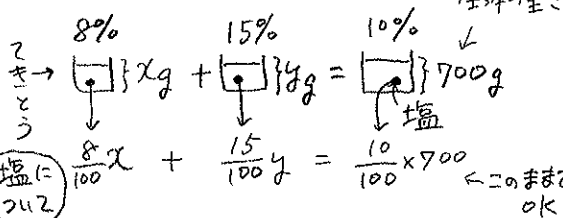 8% 15% 10%
てきとう→ }xg + }yg = }700g
塩
塩について 8/100 x + 15/100 y = 10/100 ×700
←このままで
OK